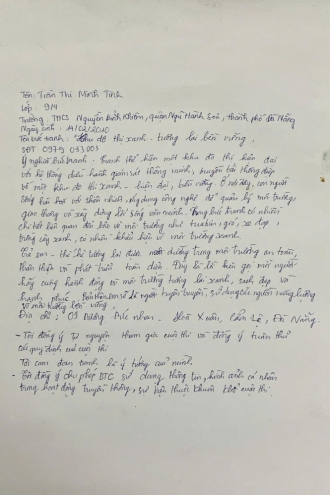 Tên: Trần Thị Minh Tính
Lớp: 9/4
Trường: THCS Nguyễn Bỉnh Khiêm, quận Ngũ Hành Sơn, thành phố Đà Nẵng
Ngày sinh: 14/02/2010
Tên bức tranh: "Khu đô thị xanh - tương lai bền vững,
SĐT 0979 033003
Ý nghĩa bức tranh: tranh thể hiện một khu đô thị hiện đại
với hệ thống điều hành giám sát thông minh, truyền tải thông điệp
về một khu đô thị xanh - hiện đại, bền vững. Ở nơi đây, con người
sống hài hoà với thiên nhiên, ứng dụng công nghệ để quản lý môi trường,
giao thông và xây dựng lối sống văn minh. Trong bức tranh có nhiều
chi tiết liên quan đến bảo vệ môi trường như tuabin, gió, xe đạp,
trồng cây xanh, có nhiều khẩu hiệu vì môi trường xanh.
thế hệ tương lai được nuôi dưỡng trong môi trường an toàn,
thân thiện và phát triển toàn diện. Đây là lời kêu gọi mọi người
hãy cùng hành động vì môi trường tương lai xanh, sạch đẹp và
hạnh phúc. người tuyên truyền, sử dụng các nguồn năng lượng
vì môi trường bền vững.
Địa chỉ: 03 Đường - Hoà Xuân, Cẩm Lệ, Đà Nẵng.
- Tôi đồng ý tự nguyện tham gia cuộc thi và đồng ý tuân thủ
các quy định của cuộc thi
Tôi cam đoan tranh là ý tưởng của mình.
- Tôi đồng ý cho phép BTC sử dụng thông tin, hình ảnh cá nhân
trong hoạt động truyền thông, sự kiện thuộc khuôn khổ cuộc thi.